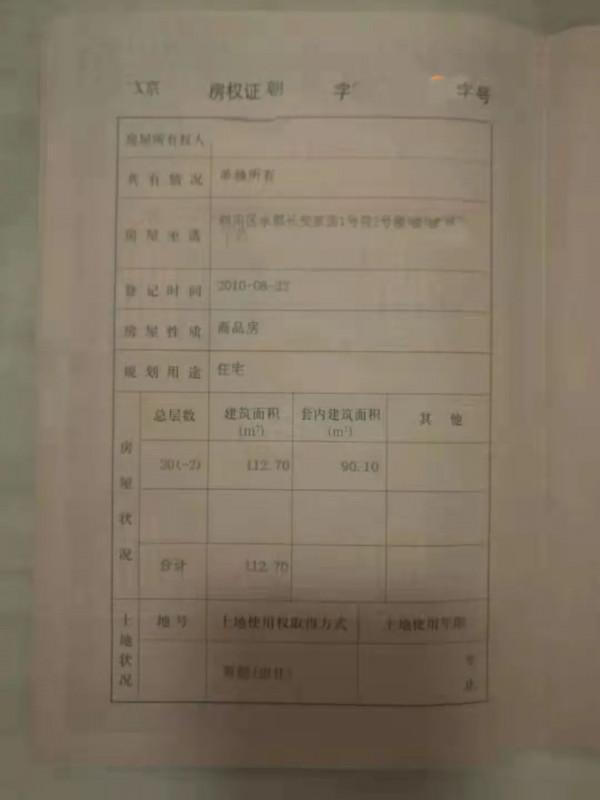 X京 房权证 朝 字 字号
房屋所有权人
共有情况 单独所有
房屋坐落
登记时间 2010-08-27
房屋性质 商品房
规划用途 住宅
房屋状况
总层数 建筑面积(m²) 套内建筑面积(m²) 其 他
(-2) 112.70 90.10
合计 112.70
土地状况
地号 土地使用权取得方式 土地使用年限
年
止